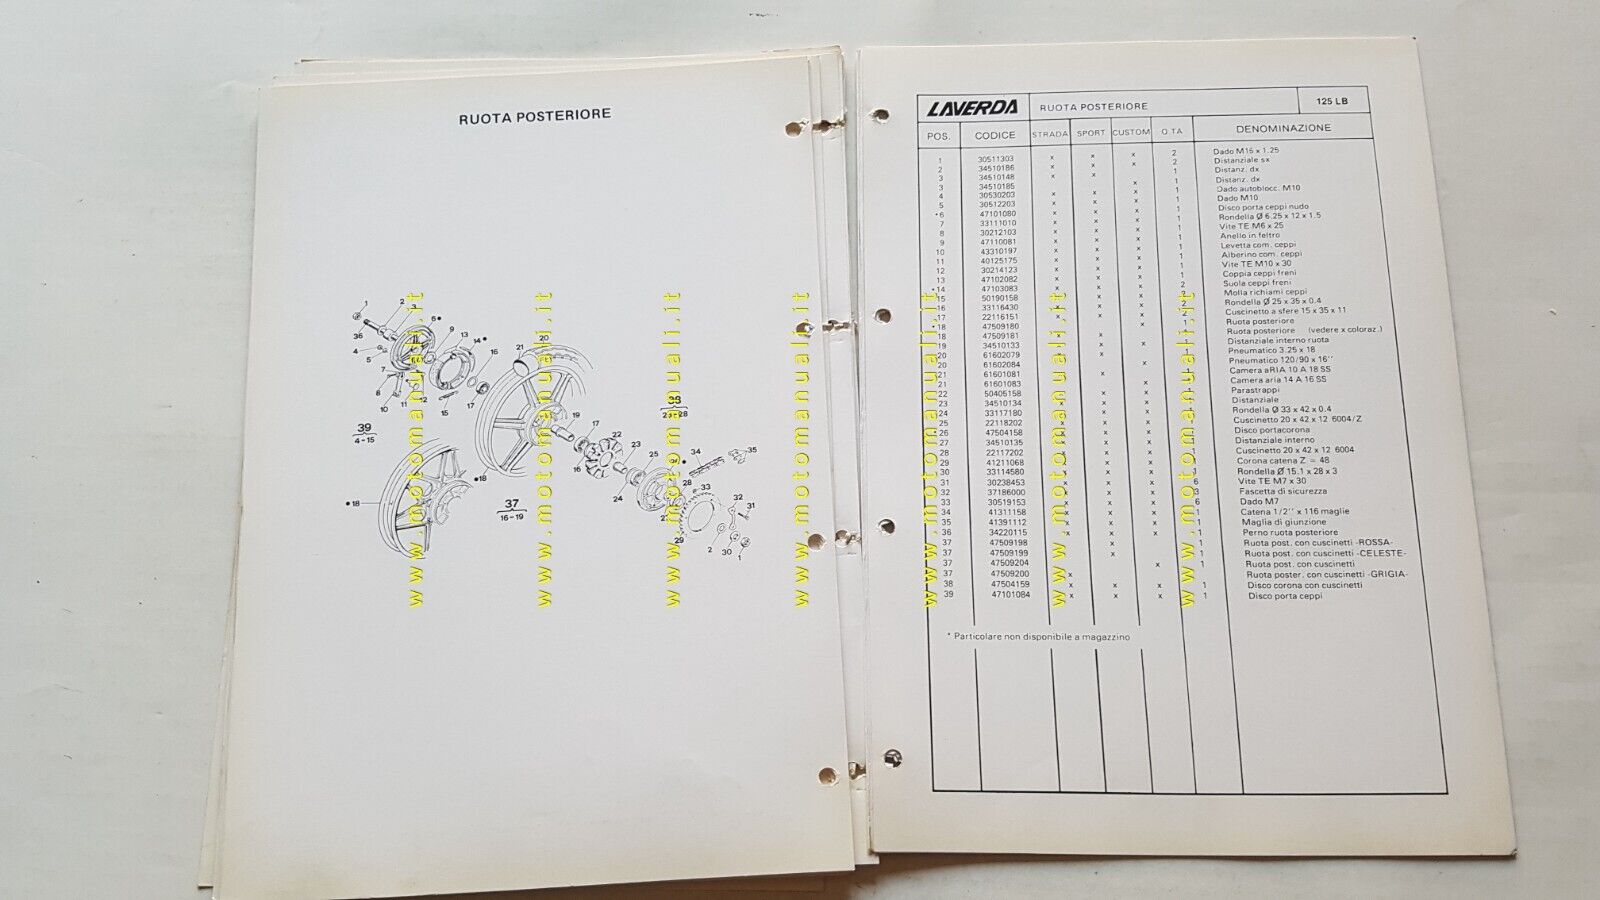 RUOTA POSTERIORE
1
2
3
36
6•
9
13
14•
16
4
5
7
8
10
11
12
15
17
21
20
39
4-15
•18
•18
37
16-19
19
17
22
16
23
24
25
38
28
34
35
28
33
32
31
29
2
30
1
www.motomanuali.it
www.motomanuali.it
www.motomanuali.it
www.motomanuali.it
www.motomanuali.it
www.motomanuali.it
www.motomanuali.it
LAVERDA RUOTA POSTERIORE 125 LB
POS. CODICE STRADA SPORT CUSTOM Q.TA DENOMINAZIONE
1 30511303 x x x 2 Dado M15 x 1.25
2 34510186 x x x 2 Distanziale sx
3 34510148 x x 1 Distanz. dx
3 34510185 x 1 Distanz. dx
4 30530203 x x x 1 Dado autoblocc. M10
5 30512203 x x x 1 Dado M10
*6 47101080 x x x 1 Disco porta ceppi nudo
7 33111010 x x x 1 Rondella Ø 6.25 x 12 x 1.5
8 30212103 x x x 1 Vite TE M6 x 25
9 47110081 x x x 1 Anello in feltro
10 43310197 x x x 1 Levetta com. ceppi
11 40125175 x x x 1 Alberino com. ceppi
12 30214123 x x x 1 Vite TE M10 x 30
13 47102082 x x x 1 Coppia ceppi freni
*14 47103083 x x x 2 Suola ceppi freni
15 50190158 x x x Molla richiami ceppi
16 33116430 x x x 2 Rondella Ø 25 x 35 x 0.4
17 22116151 x x x Cuscinetto a sfere 15 x 35 x 11
*18 47509180 x Ruota posteriore
18 47509181 x x Ruota posteriore (vedere x coloraz.)
19 34510133 x x x Distanziale interno ruota
20 61602079 x x Pneumatico 3.25 x 18
20 61602084 x Pneumatico 120/90 x 16"
21 61601081 x Camera aRIA 10 A 18 SS
21 61601083 x Camera aria 14 A 16 SS
22 50405158 x x x Parastrappi
23 34510134 x x x Distanziale
24 33117180 x x x Rondella Ø 33 x 42 x 0.4
25 22118202 x x x Cuscinetto 20 x 42 x 12 6004/Z
*26 47504158 x x x Disco portacorona
27 34510135 x x x Distanziale interno
28 22117202 x x x 1 Cuscinetto 20 x 42 x 12 6004
29 41211068 x x x 1 Corona catena Z = 48
30 33114580 x x x 1 Rondella Ø 15.1 x 28 x 3
31 30238453 x x x 6 Vite TE M7 x 30
32 37186000 x x x 3 Fascetta di sicurezza
33 30519153 x x x 6 Dado M7
34 41311158 x x x 1 Catena 1/2" x 116 maglie
35 41391112 x x x 1 Maglia di giunzione
36 34220115 x x x 1 Perno ruota posteriore
37 47509198 x 1 Ruota post. con cuscinetti -ROSSA-
37 47509199 x 1 Ruota post. con cuscinetti -CELESTE-
37 47509204 x 1 Ruota post. con cuscinetti
37 47509200 x Ruota poster. con cuscinetti -GRIGIA-
38 47504159 x x x 1 Disco corona con cuscinetti
39 47101084 x x x 1 Disco porta ceppi
* Particolare non disponibile a magazzino